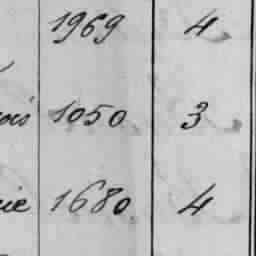 1969 4
ois 1050 3
ie 1680 4